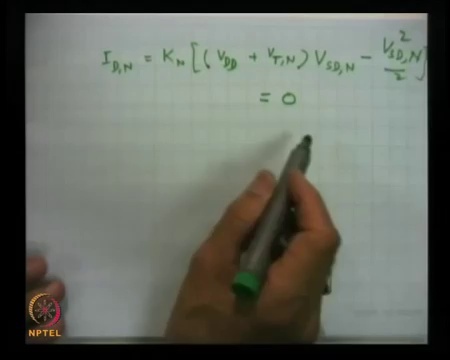 I_{D,N} = K_N [( V_{DD} + V_{T,N} ) V_{SD,N} - \frac{V_{SD,N}^2}{2} ]
= 0
NPTEL